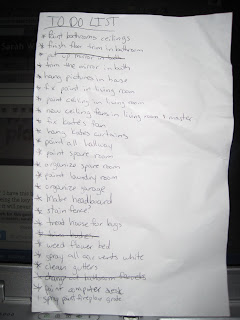 TO DO LIST
* Paint bathrooms ceilings
* finish floor trim in bathroom
* put up mirror in bath
* trim the mirror in bath
* hang pictures in house
* fix paint in living room
* paint ceiling in living room
* new ceiling fans in living room & master
* fix Katie's fan
* hang Katie's curtains
* paint all hallway
* paint spare room
* organize spare room
* paint laundry room
* organize garage
* Make headboard
* stain fence
* treat house for bugs
* weed flower bed
* spray all air vents white
* clean gutters
* change out bathroom faucets
* paint computer desk
* spray paint fireplace grate